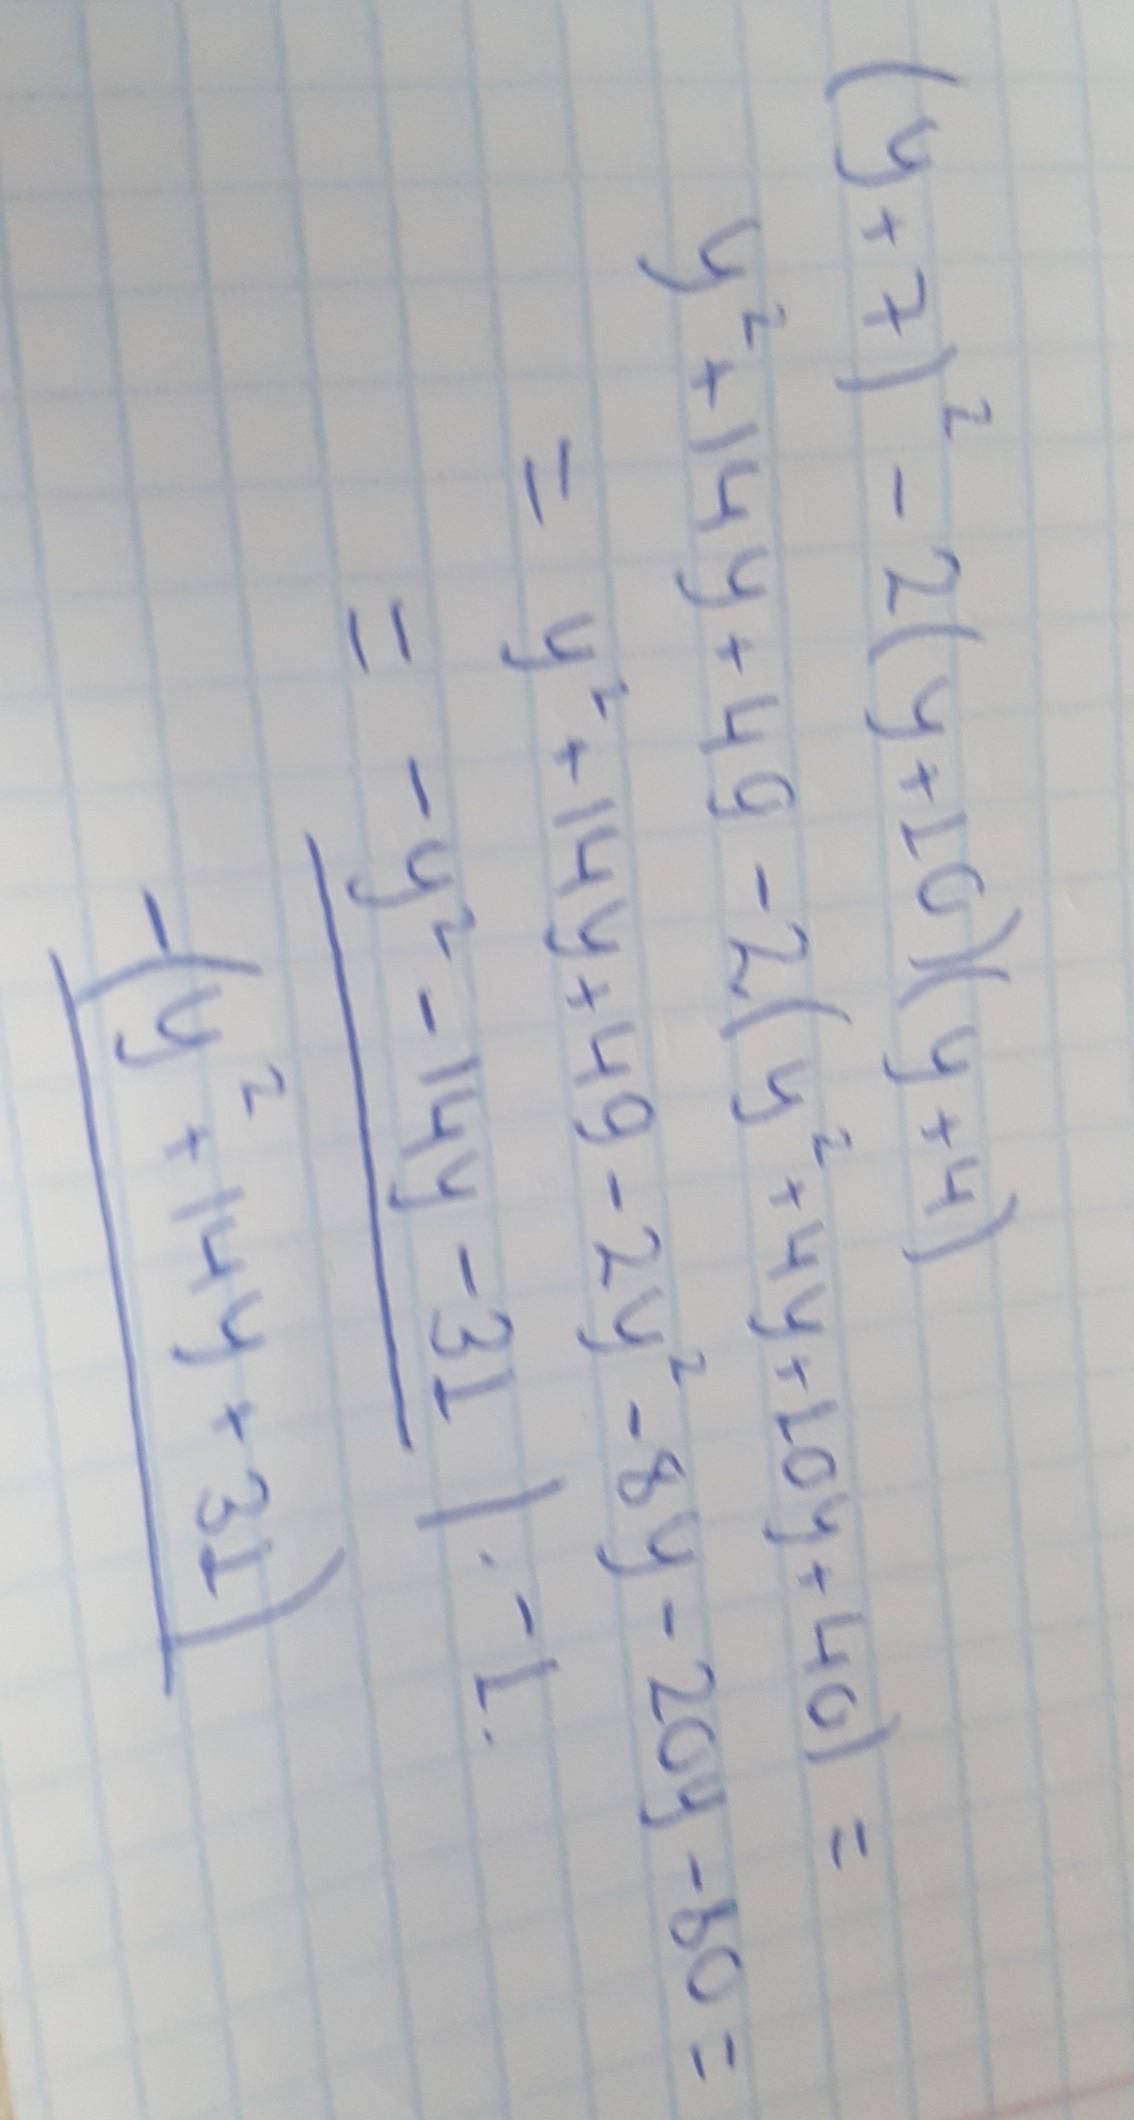 (y+7)² - 2(y+10)(y+4)
y² + 14y + 49 - 2(y² + 4y + 10y + 40) =
= y² + 14y + 49 - 2y² - 8y - 20y - 80 =
= -y² - 14y - 31 | · -1.
-(y² + 14y + 31)